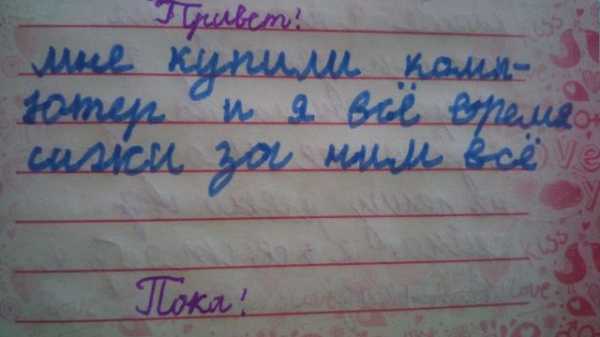 Привет!
мне купили комп-
ютер и я всё время
сижки за ним всё
Пока!